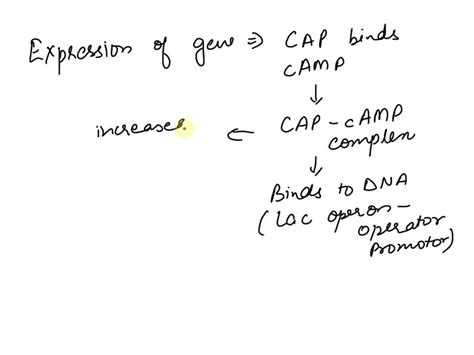 Expression of gene ⇒ CAP binds
cAMP
↓
increases. ← CAP-cAMP
complex
↓
Binds to DNA
(Lac operon-
operator
promotor)